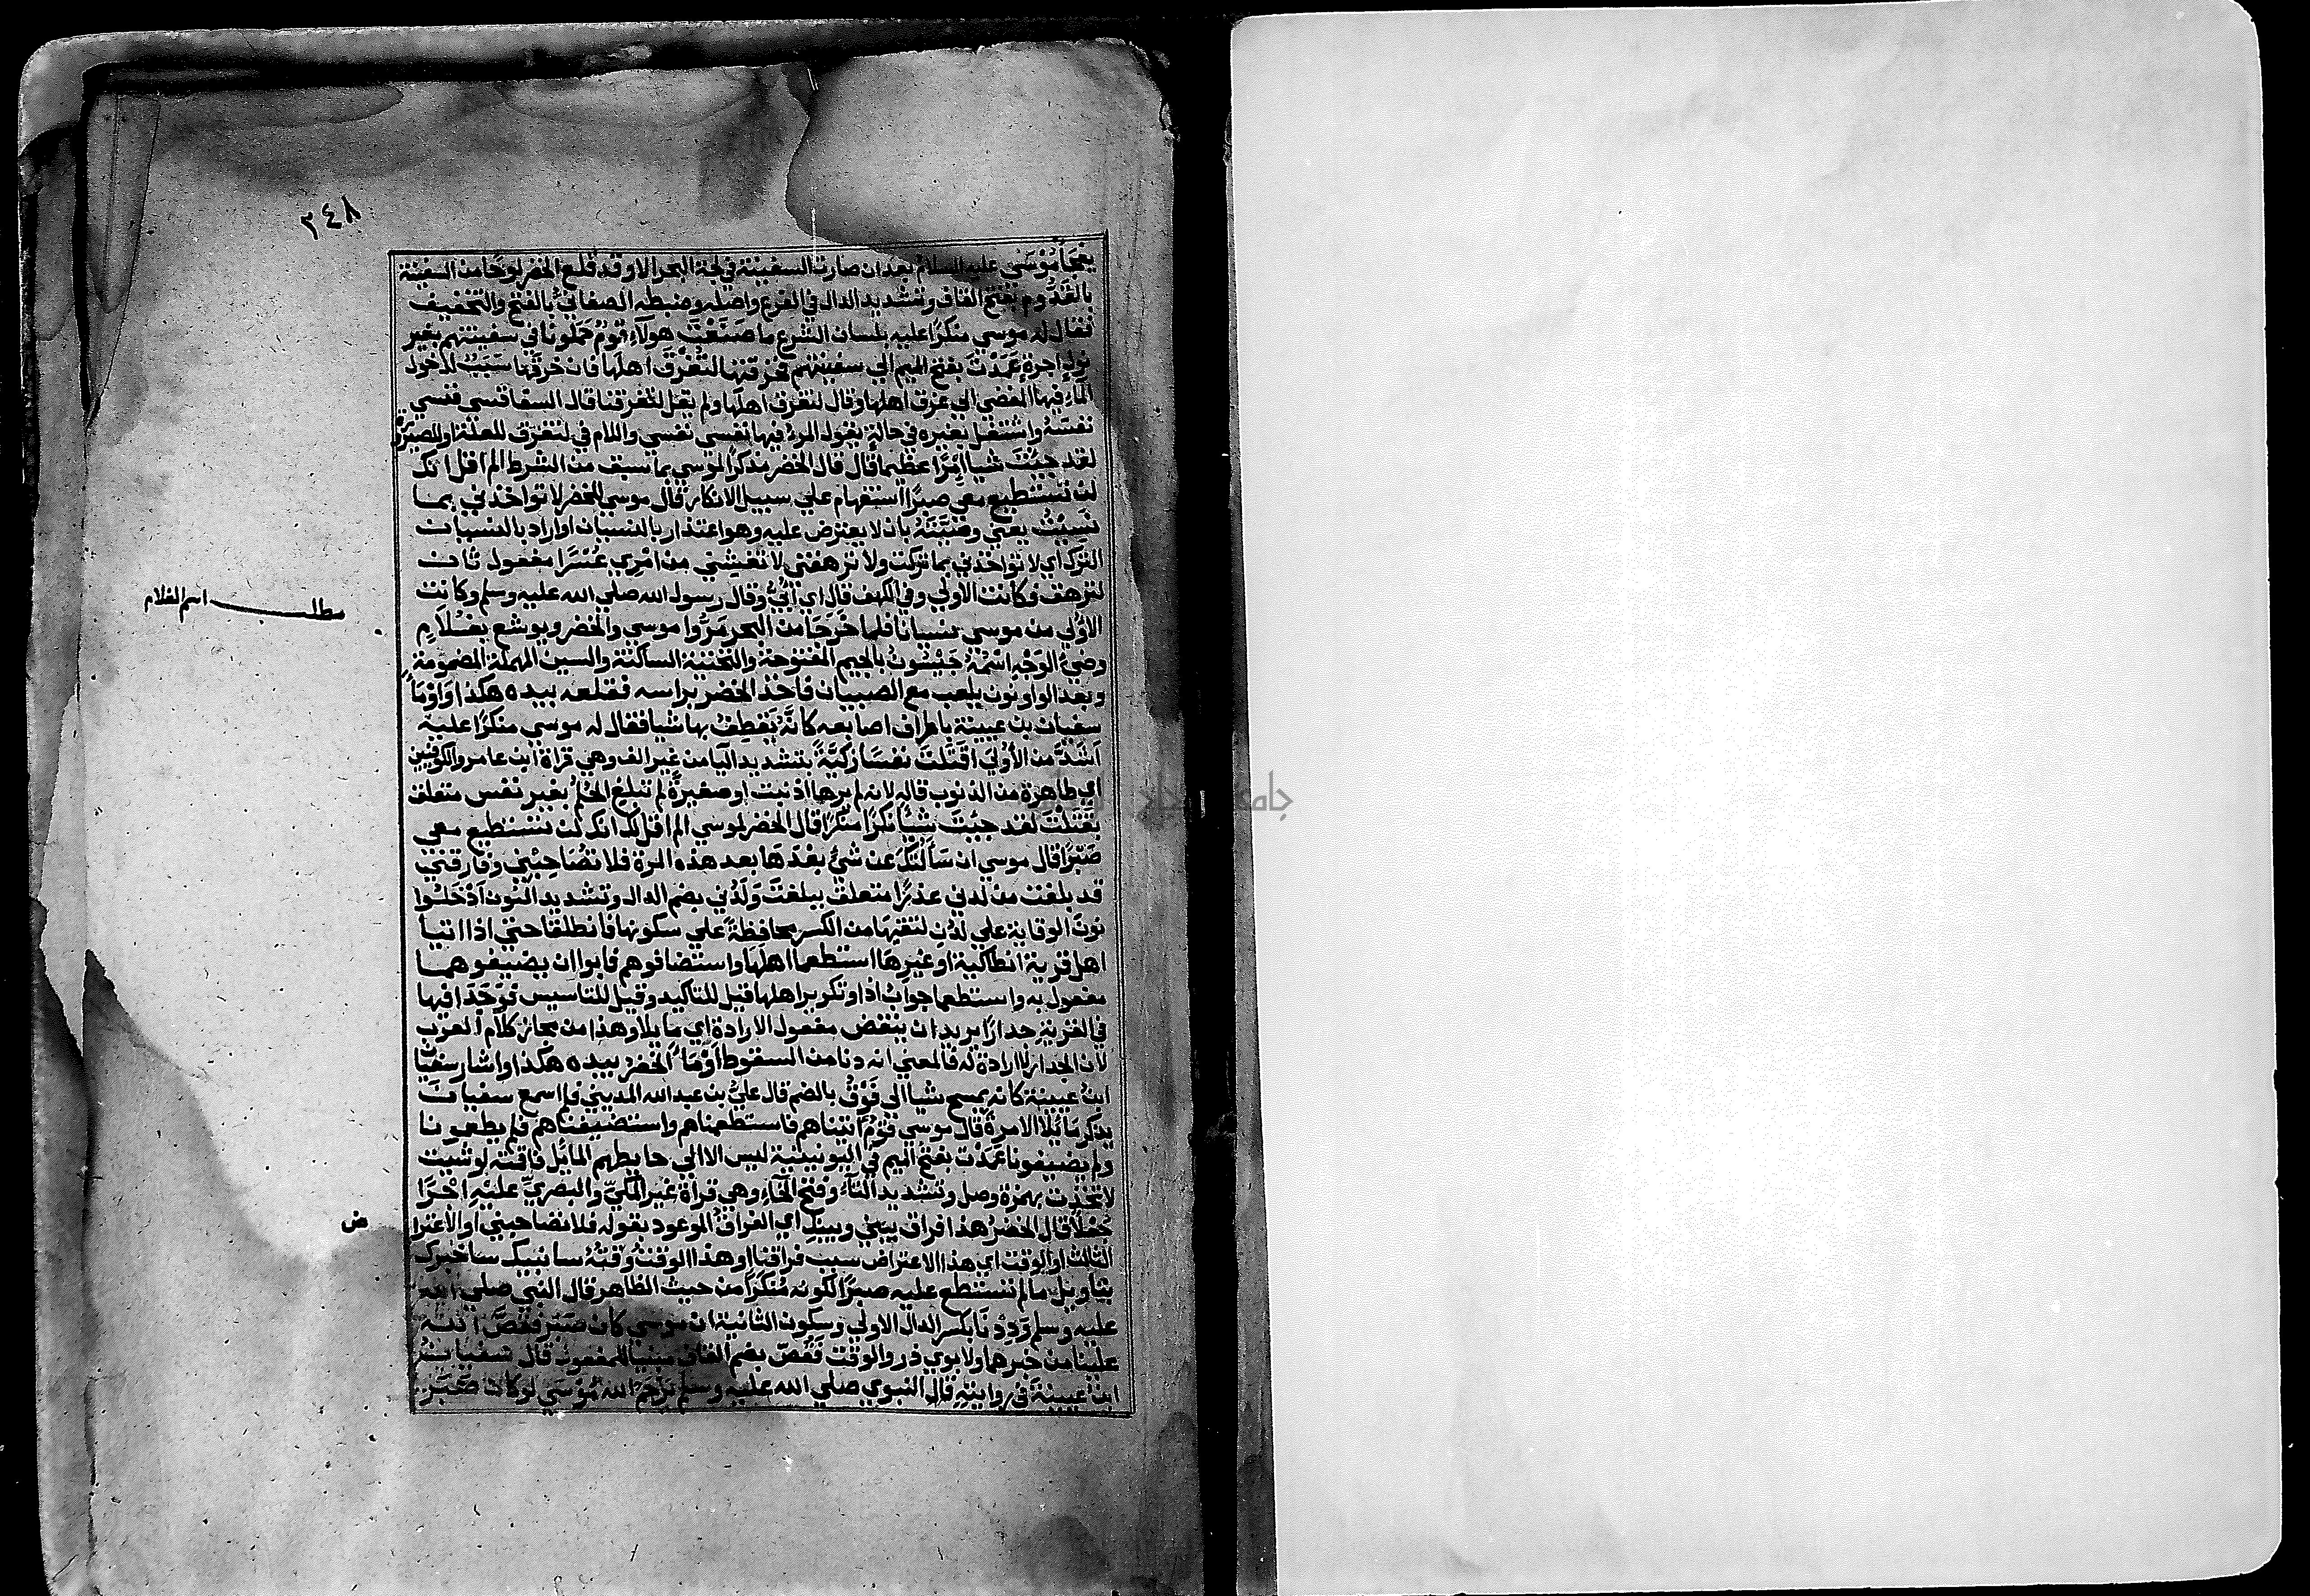 ٢٤٨
يفجأ موسي عليه السلام بعد ان صارت السفينة في لجة البحر الا وقد قلع الخضر لوحا من السفينة
بالقدوم بفتح القاف وتشديد الدال في الفرع واصله وضبطه الصغاني بالفتح والتخفيف
فقال له موسي منكرا عليه بلسان الشرع ما صنعت هولاء قوم حملونا في سفينتهم بغير
نول اجرة عمدت بفتح الميم الي سفينتهم فخرقتها لتغرق اهلها فان خرقها سبب لدخول
الماء فيها المفضي الي غرق اهلها وقال لتغرق اهلها ولم يقل لتغرقنا قال السفاقسي فنسي
نفسه واشتغل بغيره في حالة يقول المرء فيها نفسي نفسي واللام في لتغرق للعلة او للصيرورة
لقد جيت شيا إمرا عظيما قال قال الخضر مذكرا لموسي بما سبق من الشرط الم اقل انك
لن تستطيع معي صبرا استفهام علي سبيل الانكار قال موسي للخضر لا تواخذني بما
نسيت يعني وصيته بان لا يعترض عليه وهو اعتذار بالنسيان او اراد بالنسيان
الترك اي لا تواخذني بما تركت ولا ترهقني لا تغشيني من امري عسرا مفعول ثان
لترهق فكانت الاولي وفي الكهف قال اي أبي وقال رسول الله صلي الله عليه وسلم وكانت
مطلب اسم الغلام
الاولي من موسي نسيانا فلما خرجا من البحر مروا موسي والخضر ويوشع بغلام
وضيء الوجه اسمه جيسون بالجيم المفتوحة والتحتية الساكنة والسين المهملة المضمومة
وبعد الواو نون يلعب مع الصبيان فاخذ الخضر براسه فقلعه بيده هكذا واوما
سفيان بن عيينة باطراف اصابعه كانه يقطف بها شيا فقال له موسي منكرا عليه
اشد من الاولي اقتلت نفسا زكية بتشديد اليا من غير الف وهي قراة ابن عامر والكوفيين
اي طاهرة من الذنوب قاله لانه لم يرها اذنبت او صغيرة لم تبلغ الحلم بغير نفس متعلق
بقتلت لقد جيت شيأ نكرا منكرا قال الخضر لموسي الم اقل لك انك لن تستطيع معي
صبرا قال موسي ان سألتك عن شيء بعدها بعد هذه المرة فلا تصاحبني وفارقني
قد بلغت من لدني عذرا متعلق ببلغت ولدني بضم الدال وتشديد النون ادخلوا
نون الوقاية علي لدن لتقيها من الكسر محافظة علي سكونها فانطلقا حتي اذا اتيا
اهل قرية انطاكية او غيرها استطعما اهلها واستضافوهم فابوا ان يضيفوهما
مفعول به واستطعما جواب اذا وتكرير اهلها قيل للتاكيد وقيل للتاسيس فوجدا فيها
في القرية جدارا يريد ان ينقض مفعول الارادة اي مايلا وهذا من مجاز كلام العرب
لان الجدار لا ارادة له فالمعني انه دنا من السقوط أومأ الخضر بيده هكذا واشار سفيان
ابن عيينة كانه يمسح شيا الي فوق بالضم قال علي بن عبد الله المديني فلم اسمع سفيان
يذكر مائلا الا مرة قال موسي قوم اتيناهم فاستطعمناهم واستضيفناهم فلم يطعمونا
ولم يضيفونا عمدت بفتح الميم في اليونينية ليس الا الي حايطهم المايل فاقمته لو شيت
لاتخذت بهمزة وصل وتشديد التاء وفتح الخاء وهي قراة غير المكي والبصري عليه اجرا
جعلا قال الخضر هذا فراق بيني وبينك اي الفراق الموعود بقوله فلا تصاحبني او الاعترا
ض
الثالث او الوقت اي هذا الاعتراض سبب فراقنا او هذا الوقت وقته سانبيك ساخبرك
بتاويل ما لم تستطع عليه صبرا لكونه منكرا من حيث الظاهر قال النبي صلي الله
عليه وسلم وددنا بكسر الدال الاولي وسكون الثانية ان موسي كان صبر فقص الله
علينا من خبرهما ولابوي ذر والوقت فقص بضم القاف مبنيا للمفعول قال سفيان
ابن عيينة في روايته قال النبوي صلي الله عليه وسلم يرحم الله موسي لو كان صبر